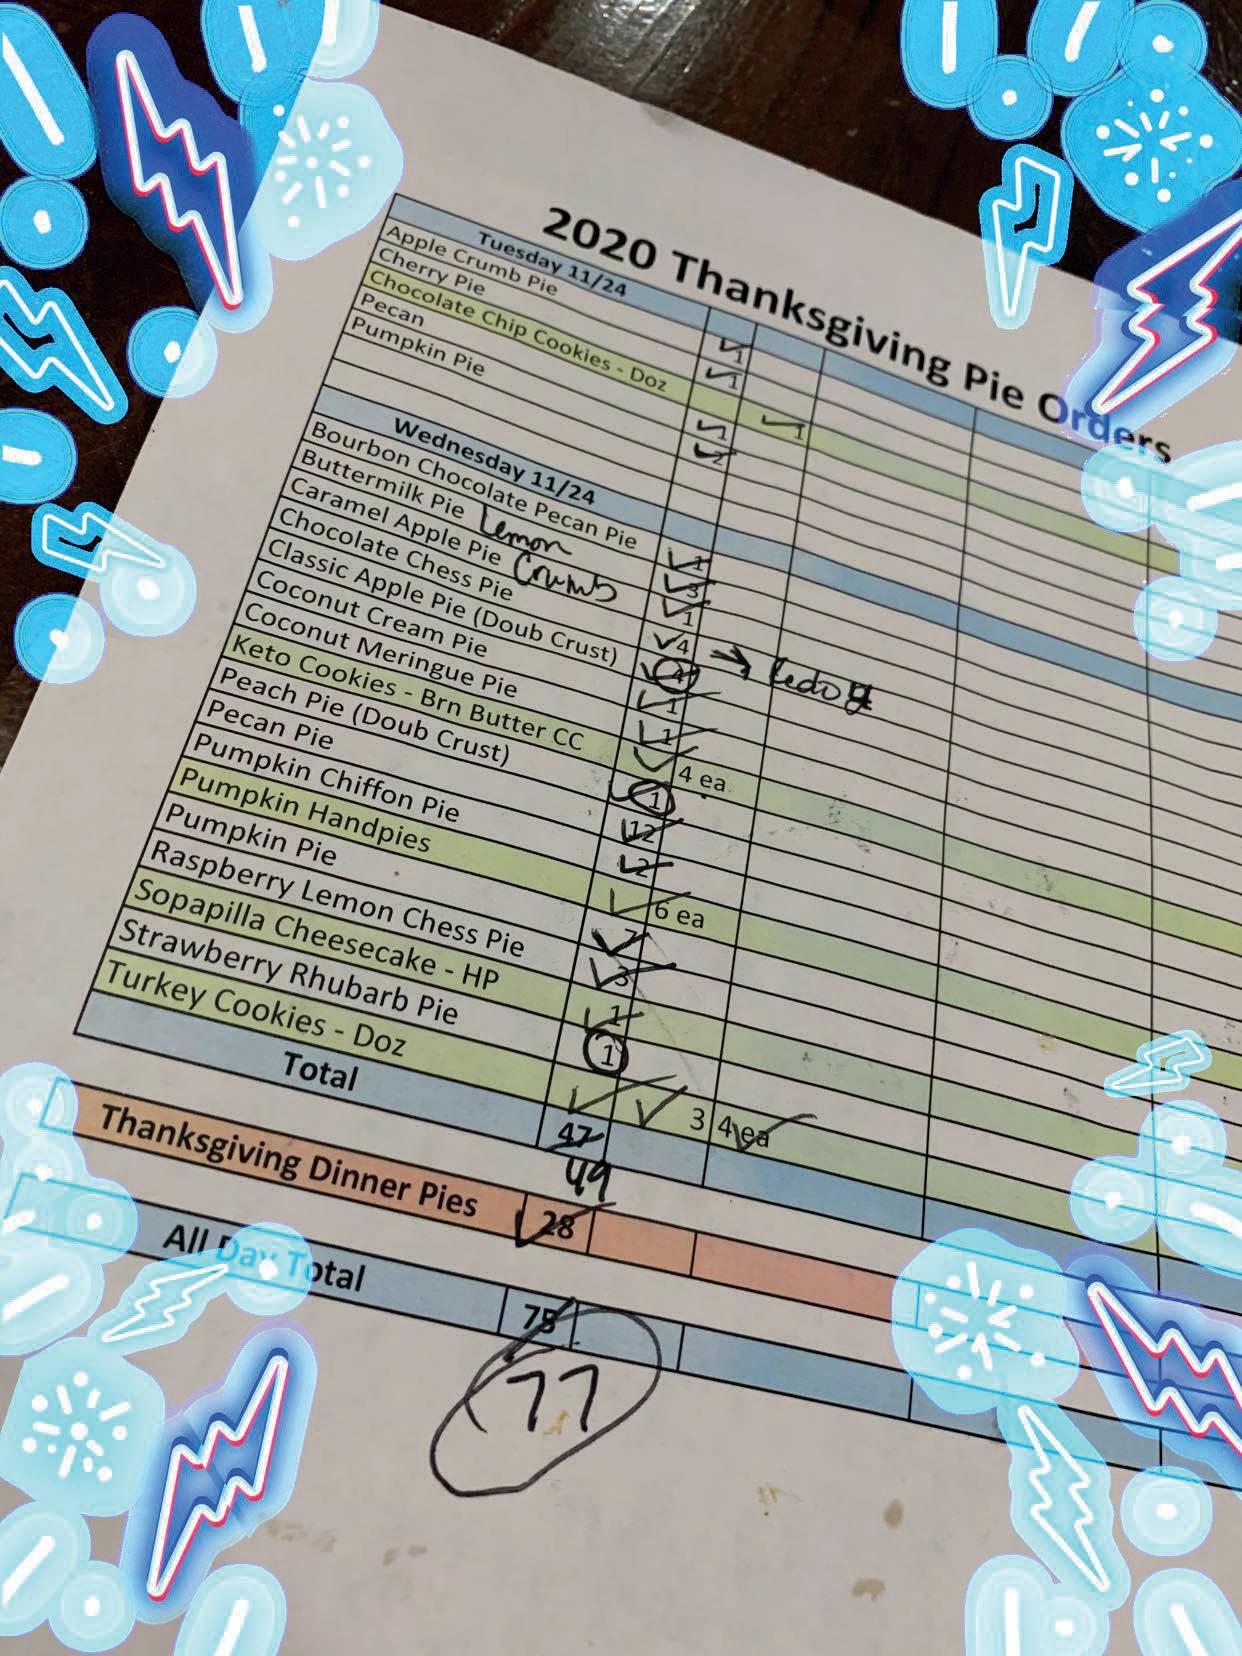 2020 Thanksgiving Pie Orders
Tuesday 11/24
Apple Crumb Pie 1
Cherry Pie 1
Chocolate Chip Cookies - Doz 1
Pecan 1
Pumpkin Pie 2
Wednesday 11/24
Bourbon Chocolate Pecan Pie 1
Buttermilk Pie Lemon 3
Caramel Apple Pie Crumb 1
Chocolate Chess Pie 4
Classic Apple Pie (Doub Crust) 4 → Redo
Coconut Cream Pie 1
Coconut Meringue Pie 1
Keto Cookies - Brn Butter CC 4 ea
Peach Pie (Doub Crust) 1
Pecan Pie 12
Pumpkin Chiffon Pie 2
Pumpkin Handpies 6 ea
Pumpkin Pie 7
Raspberry Lemon Chess Pie 3
Sopapilla Cheesecake - HP 1
Strawberry Rhubarb Pie 1
Turkey Cookies - Doz 3 4 ea
Total 47
49
Thanksgiving Dinner Pies 28
All Day Total 75
77